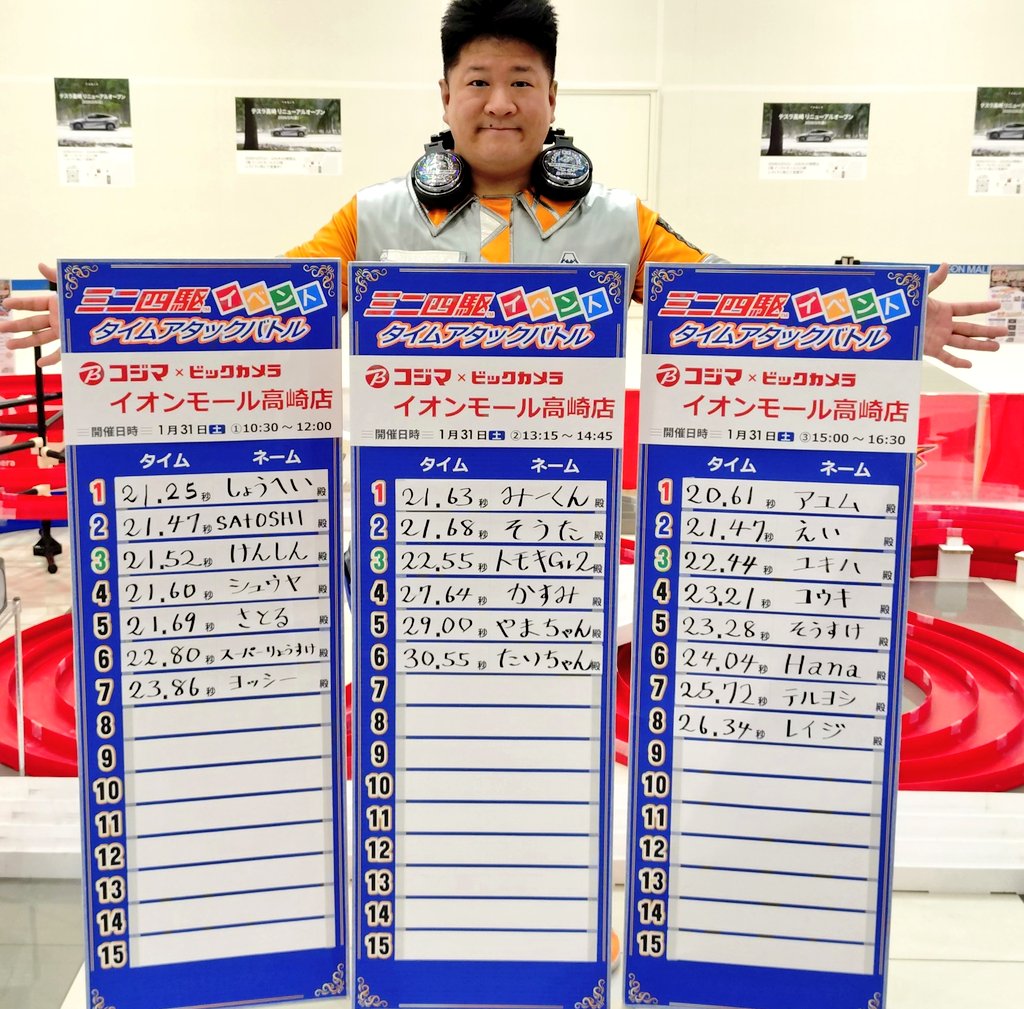 テスラ高崎 リニューアルオープン
テスラ高崎 リニューアルオープン
テスラ高崎 リニューアルオープン
ON MALL
ミニ四駆 イベント
タイムアタックバトル
コジマ×ビックカメラ
イオンモール高崎店
開催日時 1月31日 土 ①10:30～12:00
タイム ネーム
1 21.25秒 しょうへい 殿
2 21.47秒 SATOSHI 殿
3 21.52秒 けんしん 殿
4 21.60秒 シュウヤ 殿
5 21.69秒 さとる 殿
6 22.80秒 スーパーりょうすけ 殿
7 23.86秒 ヨッシー 殿
8
9
10
11
12
13
14
15
ミニ四駆 イベント
タイムアタックバトル
コジマ×ビックカメラ
イオンモール高崎店
開催日時 1月31日 土 ②13:15～14:45
タイム ネーム
1 21.63秒 みーくん 殿
2 21.68秒 そうた 殿
3 22.55秒 トモキGr2 殿
4 27.64秒 かすみ 殿
5 29.00秒 やまちゃん 殿
6 30.55秒 たいちゃん 殿
7
8
9
10
11
12
13
14
15
ミニ四駆 イベント
タイムアタックバトル
コジマ×ビックカメラ
イオンモール高崎店
開催日時 1月31日 土 ③15:00～16:30
タイム ネーム
1 20.61秒 アユム 殿
2 21.47秒 えい 殿
3 22.44秒 ユキハ 殿
4 23.21秒 コウキ 殿
5 23.28秒 そうすけ 殿
6 24.04秒 Hana 殿
7 25.72秒 テルヨシ 殿
8 26.34秒 レイジ 殿
9
10
11
12
13
14
15